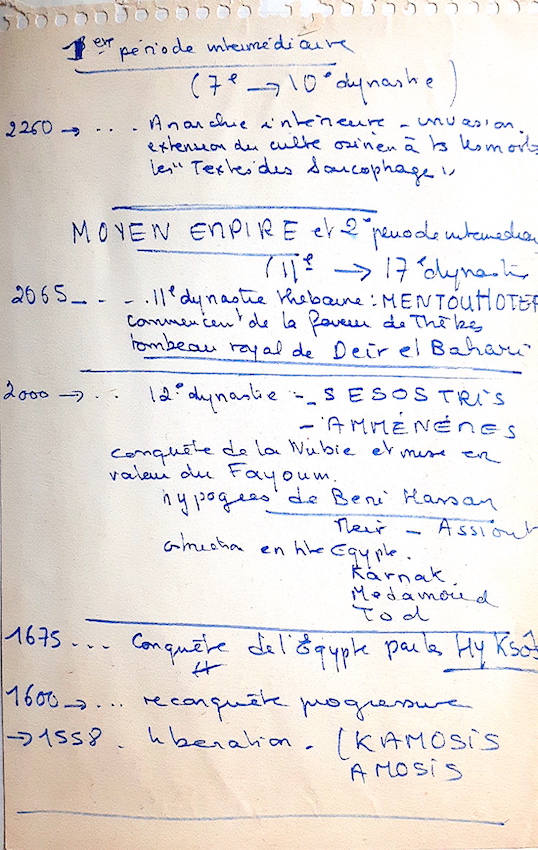 1ère période intermédiaire
(7e → 10e dynastie)
2260 → ... Anarchie intérieure - invasion.
extension du culte osirien à ts les morts
les "Textes des Sarcophages"
MOYEN EMPIRE et 2e période intermédiaire
(11e → 17e dynastie
2065 - - . 11e dynastie thébaine : MENTOUHOTEP
commencent de la faveur de Thèbes
tombeau royal de Deir el Bahari
2000 → .. 12e dynastie - SESOSTRIS
- AMMÉNÉMES
conquête de la Nubie et mise en
valeur du Fayoum.
hypogées de Beni Hassan
Meir - Assiout
construction en hte Egypte.
Karnak.
Medamoud
Tod
1675 ... Conquête de l'Égypte par les HyKsôs
1600 → ... reconquête progressive
→ 1558 . libération - (KAMOSIS
AMOSIS